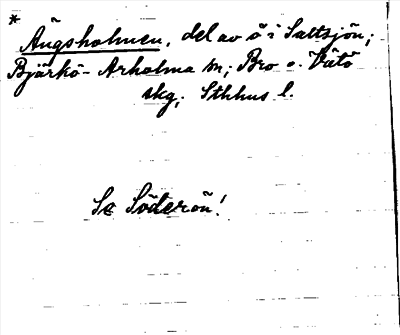 * Ängsholmen, del av ö i Saltsjön;
Björkö-Arholma sn; Bro o. Vätö
skg, Sthhus l.
Se Söderön!